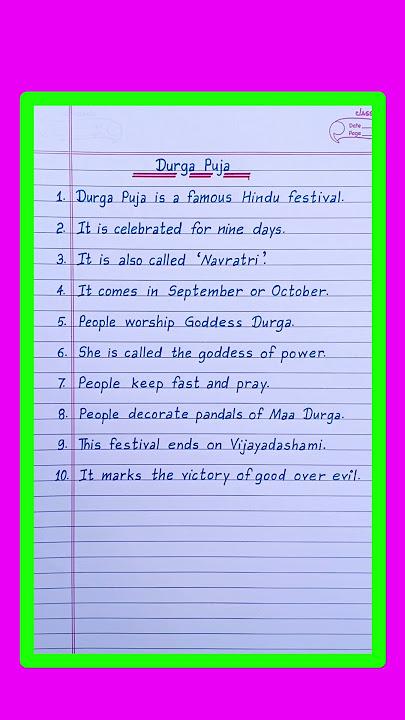 Date
Page
Durga Puja
1. Durga Puja is a famous Hindu festival.
2. It is celebrated for nine days.
3. It is also called ‘Navratri’.
4. It comes in September or October.
5. People worship Goddess Durga.
6. She is called the goddess of power.
7. People keep fast and pray.
8. People decorate pandals of Maa Durga.
9. This festival ends on Vijayadashami.
10. It marks the victory of good over evil.